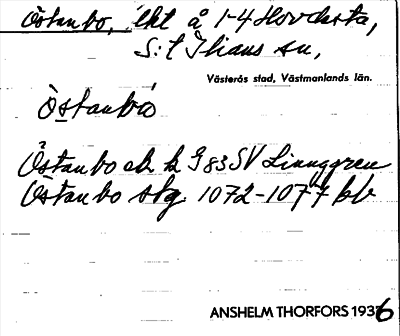 Östanbo, lht å 1-4 Hovdesta,
S:t Ilians sn,
Västerås stad, Västmanlands län.
Östanbo
Östanbo ek k G 83 SV Linnggren
Östanbo stg 1072-1077 bb
ANSHELM THORFORS 1936